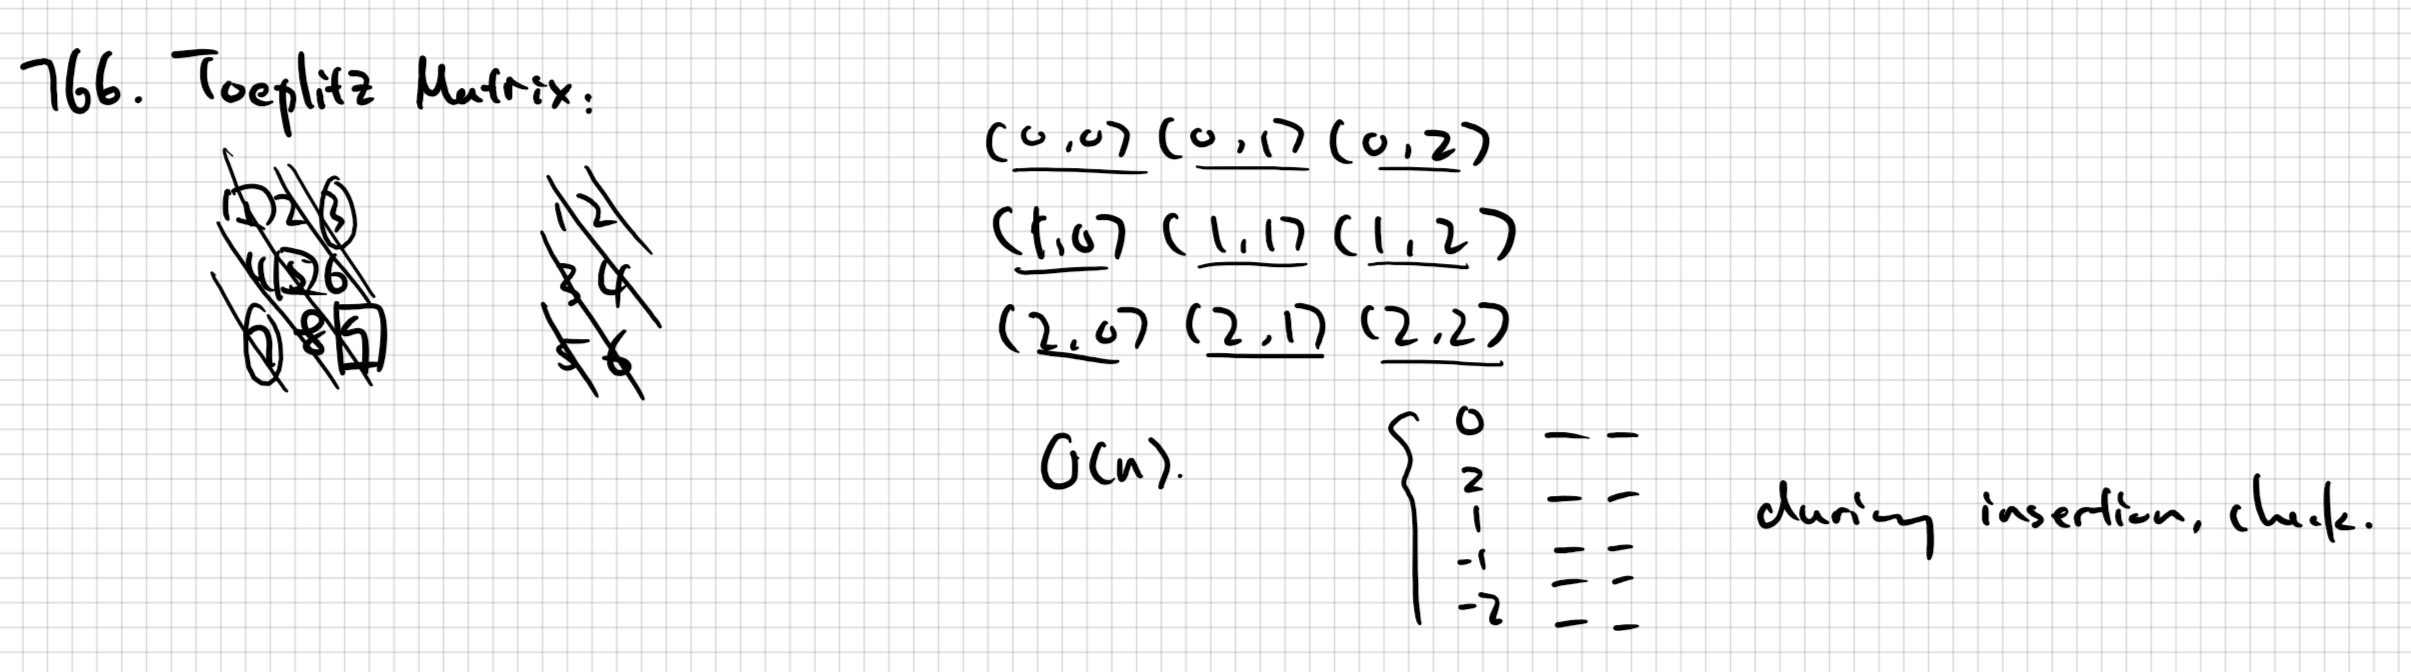 766. Toeplitz Matrix:
1 2 3
4 5 6
7 8 9
1 2
3 4
5 6
(0,0) (0,1) (0,2)
(1,0) (1,1) (1,2)
(2,0) (2,1) (2,2)
O(n).
0
2
1
-1
-2
during insertion, check.